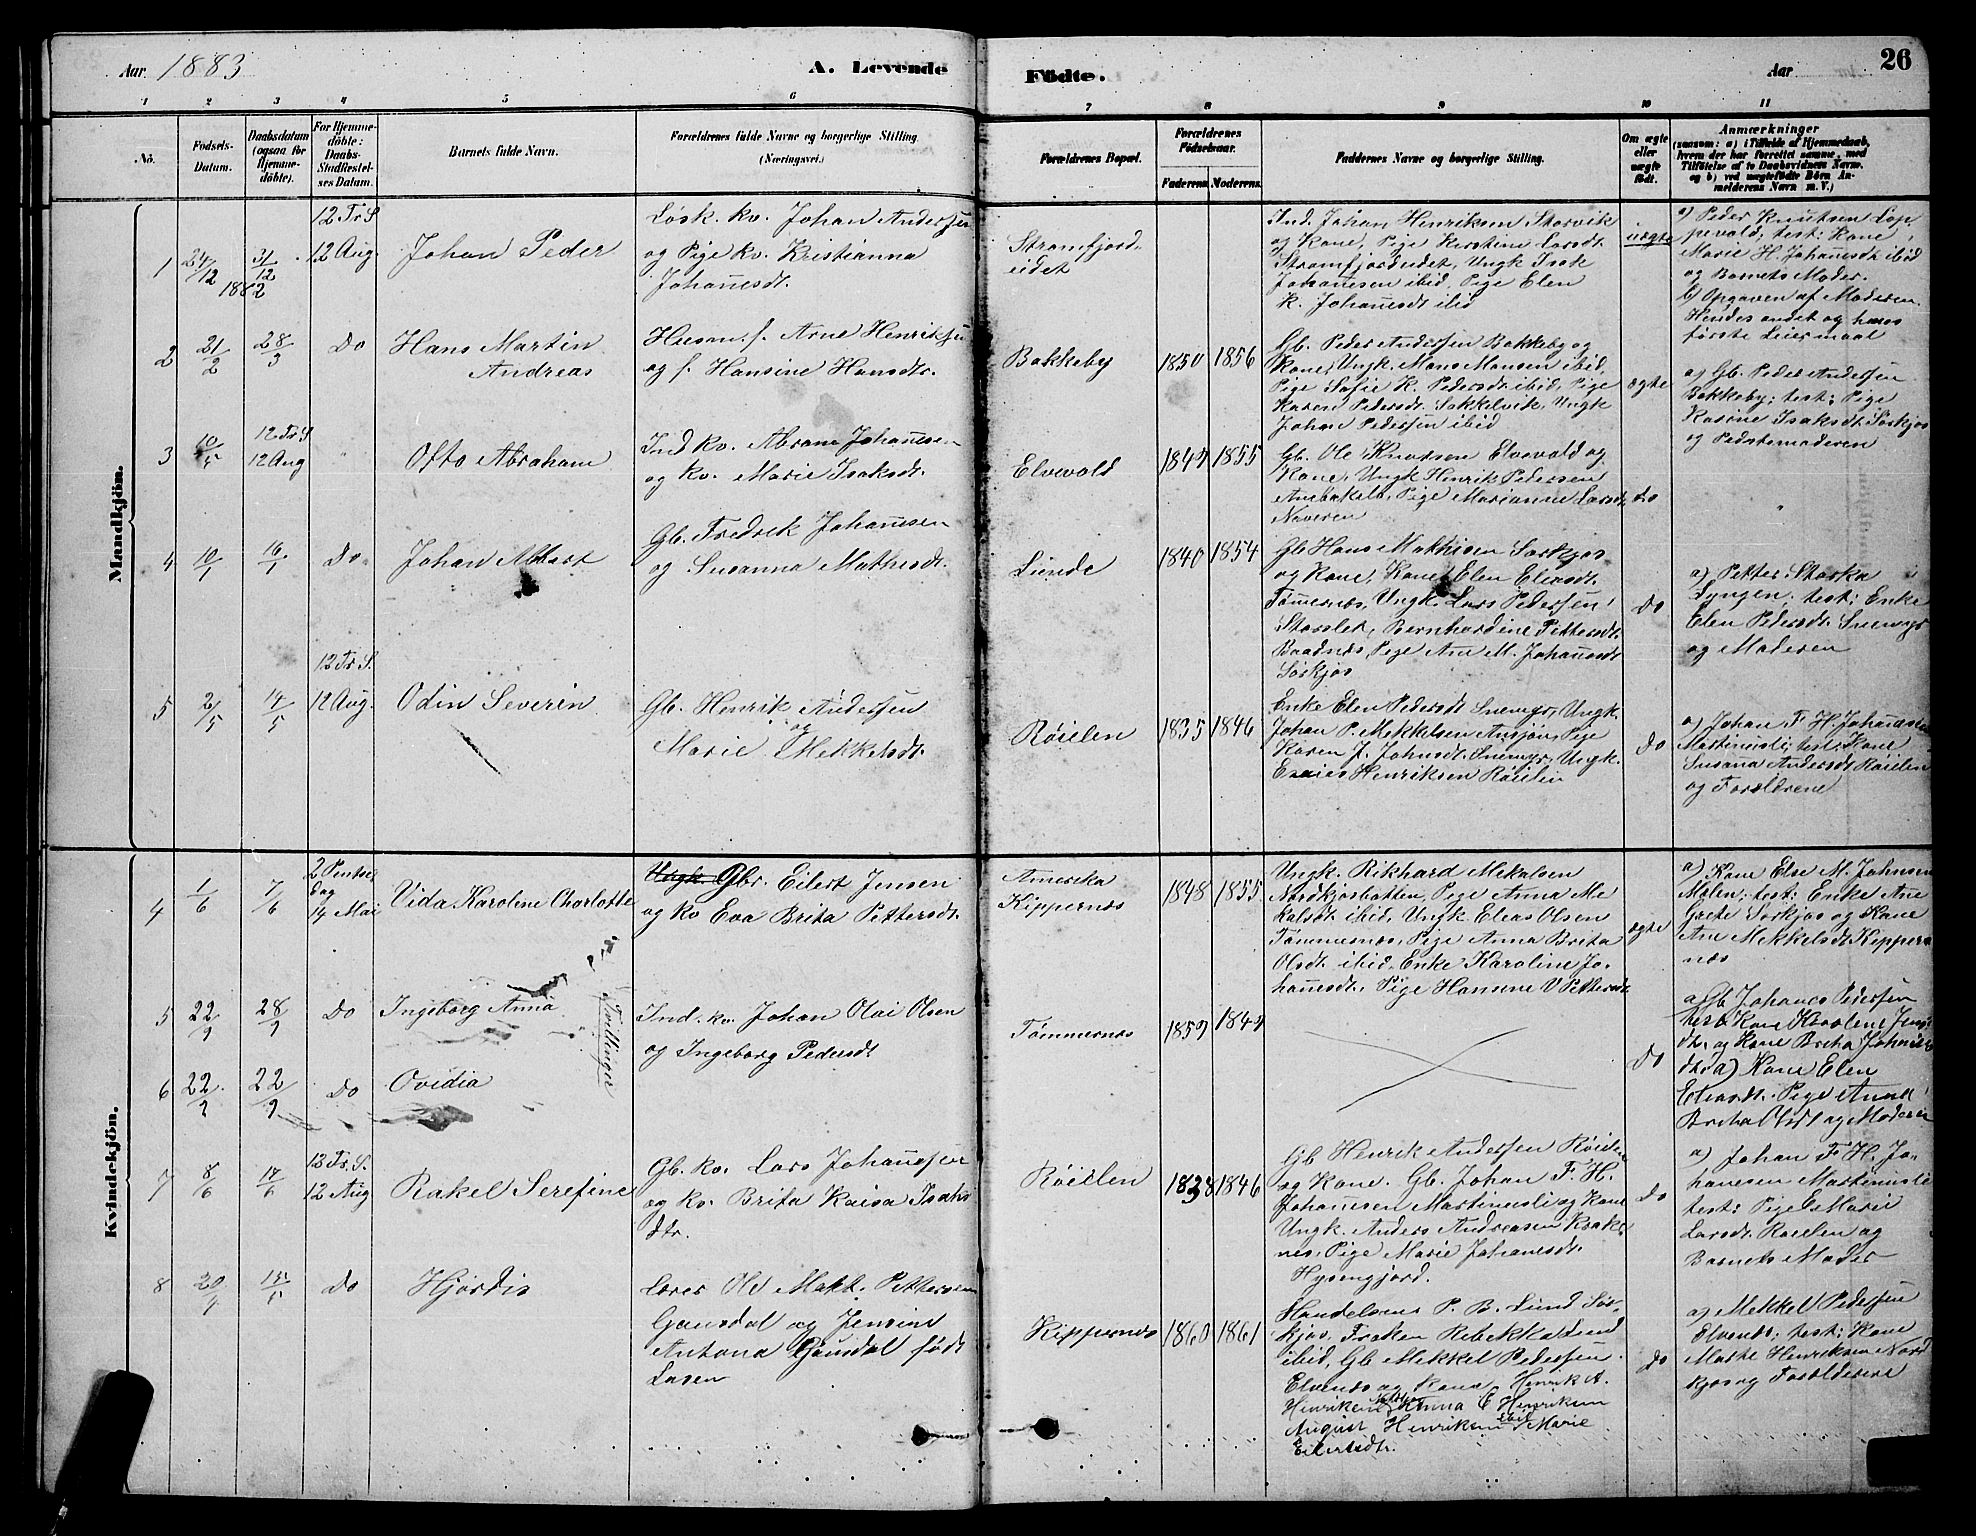 Aar 1883
A. Levende
Födte.
Aar
26
1 2 3 4 5 6 7 8 9 10 11
No.
Födsels-
Datum.
Daabsdatum
(ogsaa for
Hjemme-
döbte).
For Hjemme-
döbte:
Daabs-
Stadfæstel-
ses Datum.
Barnets fulde Navn.
Forældrenes fulde Navne og borgerlige Stilling.
(Næringsvei.)
Forældrenes Bopæl.
Forældrenes
Födselsaar.
Faderens. Moderens.
Faddernes Navne og borgerlige Stilling.
Om ægte
eller
uægte
födt.
Anmærkninger
(saasom: a) i Tilfælde af Hjemmedaab,
hvem der har forrettet samme, med
Tilföielse af to Daabsvidners Navne,
og b) ved uægtefödte Börn An-
melderens Navn m. V.)
Mandkjön.
1
24/12 1882
31/12
12 Tr S
12 Aug.
Johan Peder
Løsk. kv. Johan Andersen
og Pige kv. Kristianna
Johannesdt.
Strømfjord-
eidet
Ind. Johan Henriksen Storvik
og Kone, Pige Kerstine Larsdt.
Strømfjordeidet, Ungk. Isak
Johannesen ibid, Pige Elen
K. Johannesdt ibid
uægte
a) Peder Knutsen Lop
pevold; test: Kone
Marie H. Johannesdt ibid
og Barnets Moder.
b) Opgaven af Moderen.
Hendes andet og hans
første Leiermaal
2
21/2
28/3
Do
Hans Martin
Andreas
Husm. f. Arne Henriksen
og f. Hansine Hansdtr.
Bakkeby
1850
1856
Gb. Peder Andersen Bakkeby og
Kone, Ungk. Hans Hansen ibid,
Pige Sofie K. Pedersdt ibid, Pige
Karen Pedersdt. Sokkelvik, Ungk
Johan Pedersen ibid
ægte
a) Gb. Peder Andersen
Bakkeby; test: Pige
Kasrine Isaksdt. Sørkjos
og Pedstemoderen
3
10/5
12 Tr S
12 Aug
"
Otto Abraham
Ind kv. Abram Johannesen
og kv. Marie Isaksdt.
Elvevold
1849
1855
Gb. Ole Knutsen Elvevold og
Kone, Ungk Henrik Pedersen
Pige Marianne Larsdt,
Naveren
do
"
4
10/1
16/1
Do
Johan Albert
Gb. Fredrik Johannesen
og Susanna Mathisdt.
Lunde
1840
1854
Gb Hans Mathisen Sørkjos
og Kone, Kone Elen Eliasdt.
Tømernes, Ungk. Lars Pedersen
Storslet, Bernhardine Pettersdt.
Baadnæs, Pige Ane M. Johannesdt
Sørkjos
Do
a) Petter Storka
Lyngen; test: Enke
Elen Pedersdt. Snemyr
og Moderen
5
2/5
14/5
12 Tr S.
12 Aug.
Odin Severin
Gb. Henrik Andersen
og
Marie Mekkelsdt.
Røielen
1835
1846
Enke Elen Pedersdt Snemyr, Ungk.
Johan P. Mekkelsen Ansjon, Pige
Karen J. Johnsdt. Snemyr, Ungk.
Esaias Henriksen Røielen
Do
a) Johan F. H. Johannesen
Martinusli; test: Kone
Susana Andersdt Røielen
og Forældrene
Kvindekjön.
4
1/6
7/6
2 Pintse
dag
14 Mai
Vida Karoline Charlotte
Ungk. Gbr. Eilert Jensen
og kv Eva Brita Pettersdt.
Amerika
Kippernæs
1848
1855
Ungk. Rikhard Mekalsen
Nordkjosbotten, Pige Anna Me
kalsdt ibid, Ungk Elias Olsen
Tømmernæs, Pige Anna Brita
Olsdt. ibid, Enke Karoline Jo-
hannesdt., Pige Hansine V Pettersdt
ægte
a) Kone Else M. Johnsen
Molen; test: Enke Ane
Grete Sørkjos og Kone
Ane Mekkelsdt Kipper
næs
5
22/9
28/9
Do
Ingeborg Anna
Tvillinger
Ind. kv. Johan Olai Olsen
og Ingeborg Pedersdt
Tømmernæs
1859
1849
Do
a) Gb Johannes Pedersen
test Kone Karoline Jens
dt. og Kone Britha Johannes
dt. a) Kone Elen
Eliasdt. Pige Anne
Britha Olsdt og Moderen
6
22/9
22/9
Do
Ovidia
7
8/6
17/6
13 Tr. S.
12 Aug
Rakel Serefine
Gb. kv. Lars Johannesen
og kv. Brita Kaisa Isaks
dtr.
Røielen
1838
1846
Gb Henrik Andersen Røielen
og Kone. Gb. Johan F. H.
Johannesen Martinusli og Kone
Ungk. Anders Andreasen Krake
nes, Pige Marie Johannesdt.
Hysengjord.
Do
a) Johan F. H. Jo-
hanesen Martinusli
test: Pige Marie
Larsdt. Røielen og
Barnets Moder
8
20/4
15/5
Do
Hjørdis
Lærer Ole Mekk. Pettersen
Gausdal og Jensine
Antona Gausdal født
Lasen
Kippernæs
1860
1861
Handelsm P. B. Lund Sør-
kjos, Frøken Rebekka Lund
ibid, Gb Mekkel Pedersen
Elvenes og Kone, Henrik A.
Henriksen Anna E Henriksen
August Henriksen ibid Marie
Eilertsdt.
Do
a) Mekkel Pedersen
Elvenes; test: Kone
Marte Henriksen Nord
kjos og Forældrene